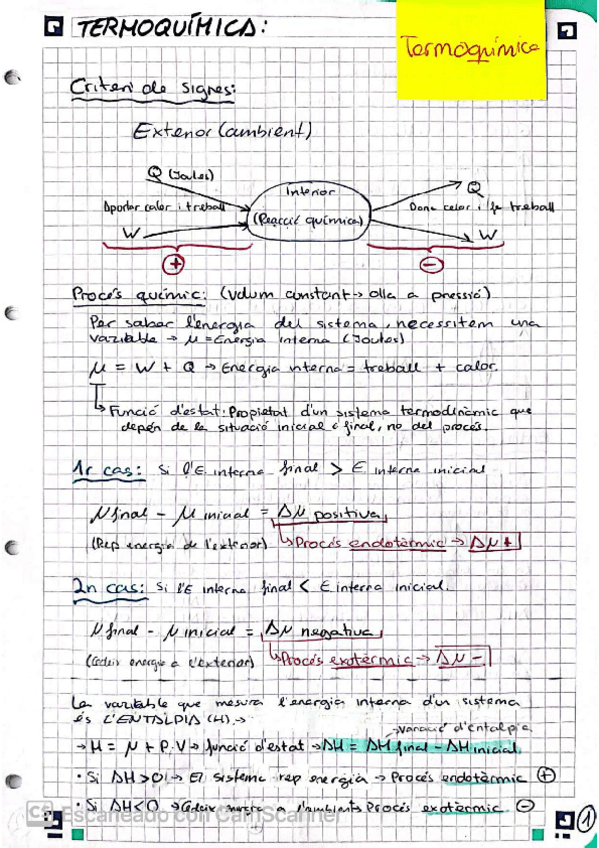 TERMOQUÍMICA:
Termoquímica
Criteri de signes:
Exterior (ambient)
Q (Joules)
Interior
Q
Aportar calor i treball
(Reacció química)
Dona calor i fa treball
W
W
+
-
Procés químic: (volum constant → olla a pressió)
Per saber l'energia del sistema, necessitem una
variable → μ = Energia interna (Joules)
μ = W + Q → Energia interna = treball + calor.
↳ Funció d'estat: Propietat d'un sistema termodinàmic que
depèn de la situació inicial i final, no del procés.
1r cas: Si l'E interna final > E interna inicial
μ final - μ inicial = Δμ positiva
(Rep energia de l'exterior) ↳ Procés endotèrmic → Δμ +
2n cas: Si l'E interna final < E interna inicial.
μ final - μ inicial = Δμ negativa
(Cedeix energia a l'exterior) ↳ Procés exotèrmic → Δμ -
La variable que mesura l'energia interna d'un sistema
és L'ENTALPIA (H). →
→ Variació d'entalpia
→ H = μ + P.V → funció d'estat → ΔH = ΔH final - ΔH inicial
• Si ΔH > 0 → El sistema rep energia → Procés endotèrmic +
• Si ΔH < 0 → Cedeix energia a l'ambient → Procés exotèrmic -
CS Escaneado con CamScanner
1